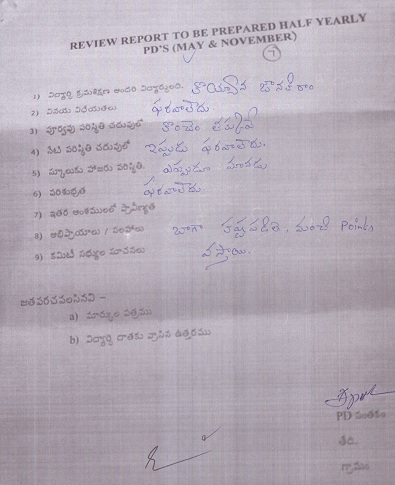 REVIEW REPORT TO BE PREPARED HALF YEARLY
PD'S (MAY & NOVEMBER)
7
1) విద్యార్థి క్రమశిక్షణ అందరి విద్యార్థులది.
2) వినయ విధేయతలు ఫరవాలేదు
3) పూర్వపు పరిస్థితి చదువులో కొంచెం తక్కువే
4) నేటి పరిస్థితి చదువులో ఇప్పుడు ఫరవాలేదు.
5) స్కూలుకు హాజరు పరిస్థితి. ఎప్పుడూ మానడు
6) పరిశుభ్రత ఫరవాలేదు
7) ఇతర అంశములలో ప్రావీణ్యత
8) అభిప్రాయాలు / సలహాలు బాగా కష్టపడితే, మంచి Points
9) కమిటీ సభ్యుల సూచనలు వస్తాయి.
జతపరచవలసినవి –
a) మార్కుల పత్రము
b) విద్యార్థి దాతకు వ్రాసిన ఉత్తరము
PD సంతకం
తేది.
గ్రామం